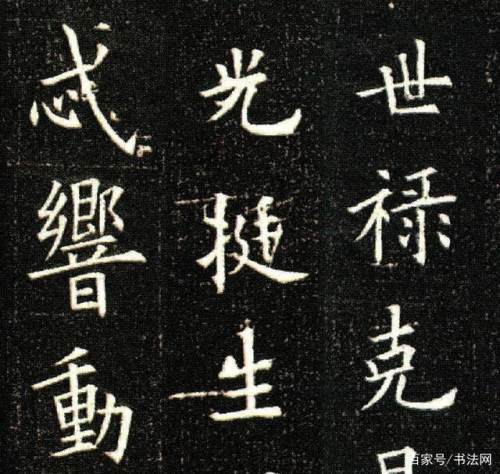 世禄克
光挺生
忒響動
百家号/书法网